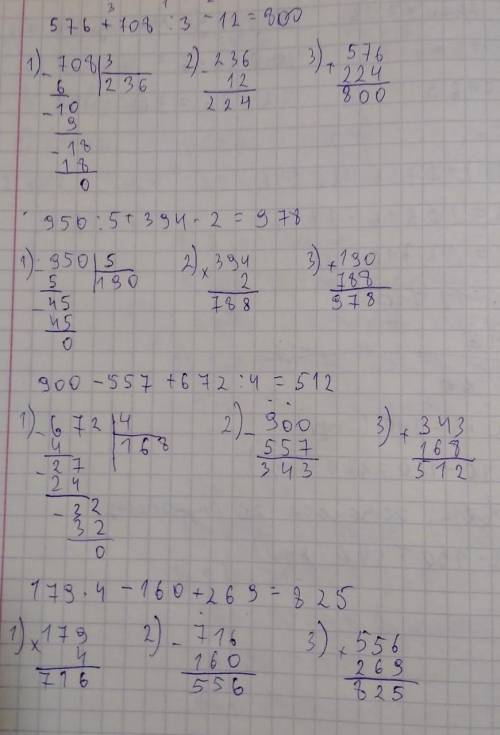 3
576 + 708 : 3 - 12 = 800
1) - 708 | 3
6 236
- 10
9
- 18
18
0
2) - 236
12
224
3) + 576
224
800
950 : 5 + 394 · 2 = 978
1) - 950 | 5
5 190
- 45
45
0
2) × 394
2
788
3) + 190
788
978
900 - 557 + 672 : 4 = 512
1) - 672 | 4
4 168
- 27
24
- 32
32
0
2) - 900
557
343
3) + 343
168
512
179 · 4 - 160 + 269 = 825
1) × 179
4
716
2) - 716
160
556
3) + 556
269
825